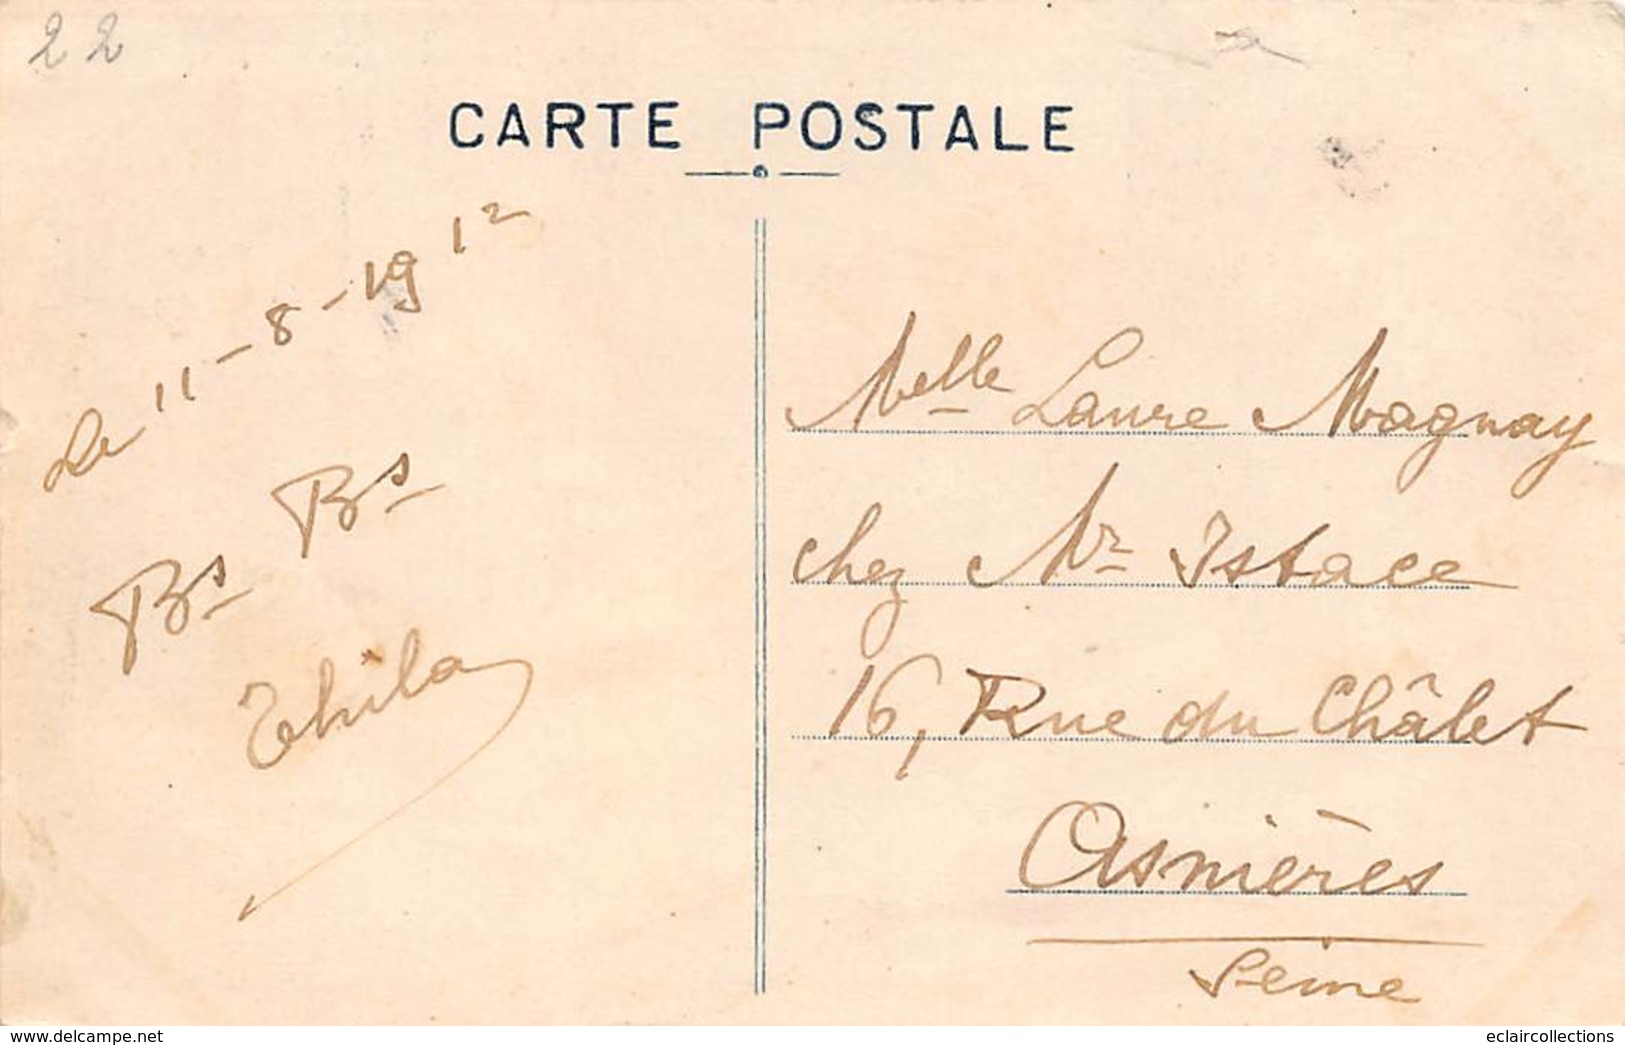 22
CARTE POSTALE
Le 11-8-1912
Bs Bs
Thila
Melle Laure Magnay
chez Mr Istace
16, Rue du Châlet
Asnières
Seine
www.delcampe.net
eclaircollections